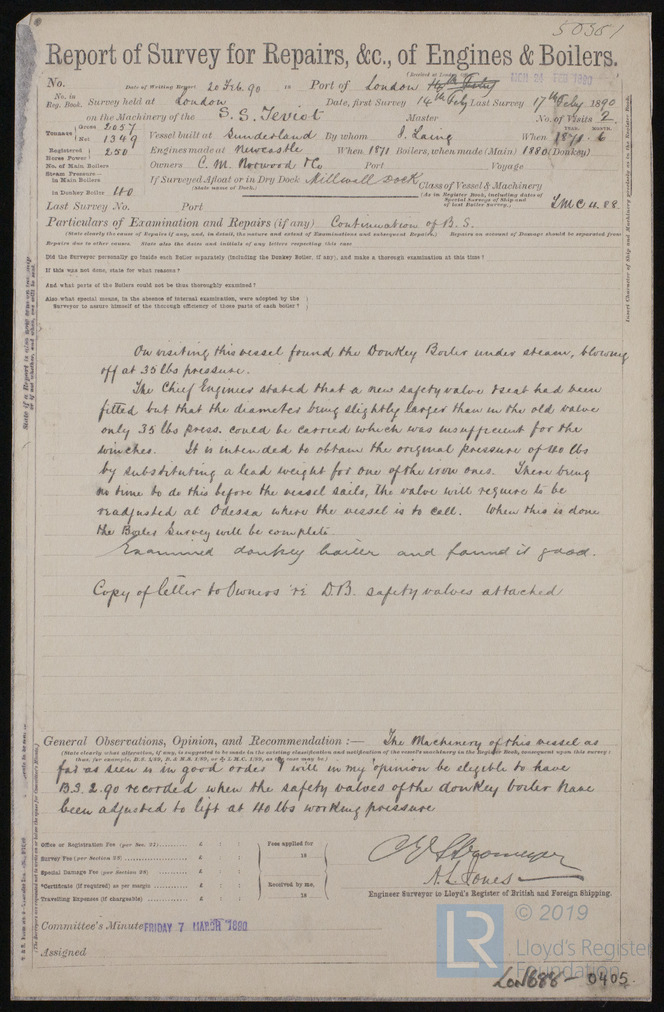 50351
Report of Survey for Repairs, &c., of Engines & Boilers.
(Received at London Office
MON 24 FEB 1890
No. Date of Writing Report 20 Feb. 90 18 Port of London
No. in Reg. Book. Survey held at London Date, first Survey 14th Feby Last Survey 17th Feby 1890
on the Machinery of the S.S. Teviot Master No. of Visits 2
Tonnage Gross 2057 Net 1349 Vessel built at Sunderland By whom J. Laing When YEAR. 1871 MONTH. 6
Registered Horse Power 250 Engines made at Newcastle When 1871 Boilers, when made (Main) 1880 (Donkey)
No. of Main Boilers Owners C. M. Norwood & Co Port Voyage
Steam Pressure— in Main Boilers If Surveyed Afloat or in Dry Dock Millwall Dock Class of Vessel & Machinery
(State name of Dock.) (As in Register Book, including dates of Special Surveys of Ship and of last Boiler survey.)
in Donkey Boiler 40 LMC 4.88
Last Survey No. Port
Particulars of Examination and Repairs (if any) Continuation of B.S.
(State clearly the cause of Repairs if any, and, in detail, the nature and extent of Examinations and subsequent Repairs.) Repairs on account of Damage should be separated from
Repairs due to other causes. State also the dates and initials of any letters respecting this case
Did the Surveyor personally go inside each Boiler separately (including the Donkey Boiler, if any), and make a thorough examination at this time?
If this was not done, state for what reasons?
And what parts of the Boilers could not be thus thoroughly examined?
Also what special means, in the absence of internal examination, were adopted by the
Surveyor to assure himself of the thorough efficiency of those parts of each boiler?
On visiting this vessel found the Donkey Boiler under steam, blowing
off at 35 lbs pressure.
The Chief Engineer stated that a new safety valve & seat had been
fitted but that the diameter being slightly larger than in the old valve
only 35 lbs press. could be carried which was insufficient for the
winches. It is intended to obtain the original pressure of 40 lbs
by substituting a lead weight for one of the iron ones. There being
no time to do this before the vessel sails, the valve will require to be
readjusted at Odessa where the vessel is to call. When this is done
the Boiler Survey will be complete.
Examined donkey boiler and found it good.
Copy of letter to Owners re D.B. safety valves attached
General Observations, Opinion, and Recommendation :— The Machinery of this vessel as
(State clearly what alteration, if any, is suggested to be made in the existing classification and notification of the vessel's machinery in the Register Book, consequent upon this survey:
far as seen is in good order & will in my opinion be eligible to have
B.S. 2.90 recorded when the safety valves of the donkey boiler have
been adjusted to lift at 40 lbs working pressure
Office or Registration Fee (per Sec. 27) £ : : Fees applied for
Survey Fee (per Section 28) £ : : 18
Special Damage Fee (per Section 28) £ : :
*Certificate (if required) as per margin £ : : Received by me,
Travelling Expenses (if chargeable) £ : : 18
A. L. Jones
Engineer Surveyor to Lloyd's Register of British and Foreign Shipping.
Committee's Minute FRIDAY 7 MARCH 1890
Assigned
© 2019
LR
Lloyd's Register
Foundation
LON688-0405
Insert Character of Ship and Machinery precisely as in the Register Book.